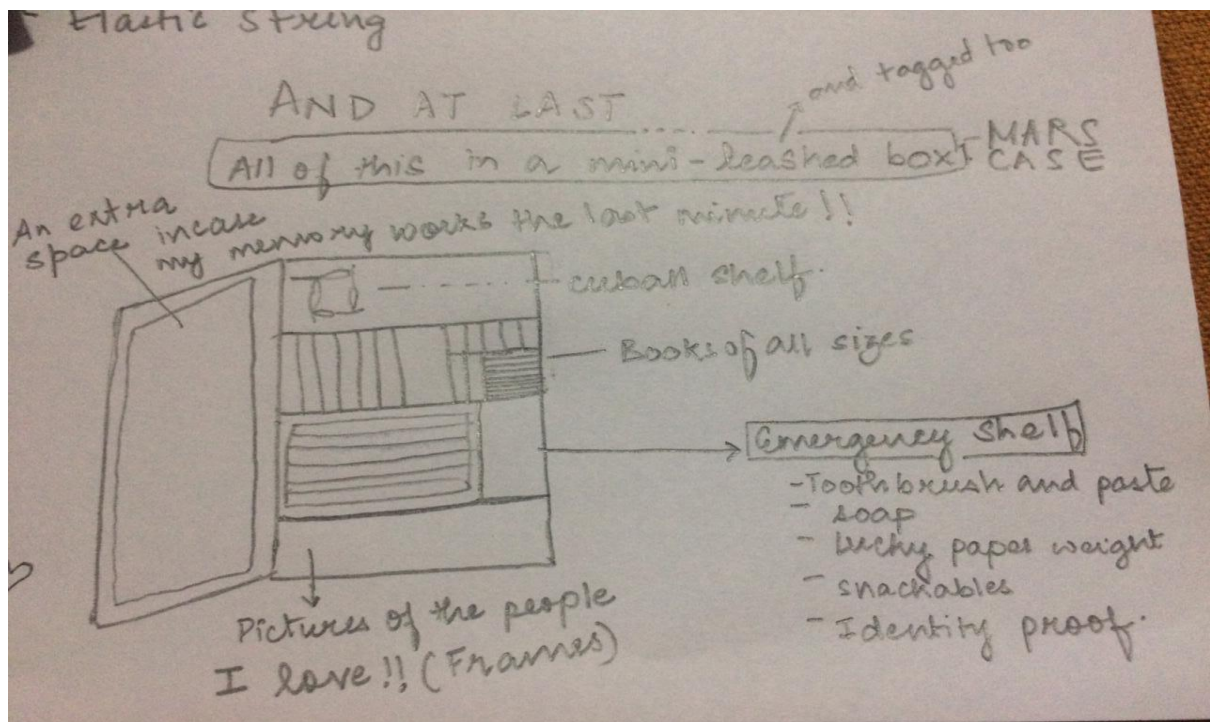 Elastic string
AND AT LAST
and tagged too
All of this in a mini-leashed box
MARS
CASE
An extra
space incase
my memory works the last minute!!
shelf.
Books of all sizes
Emergency shelf
- Toothbrush and paste
- soap
- Lucky paper weight
- snackables
- Identity proof.
Pictures of the people
I love!! (Frames)